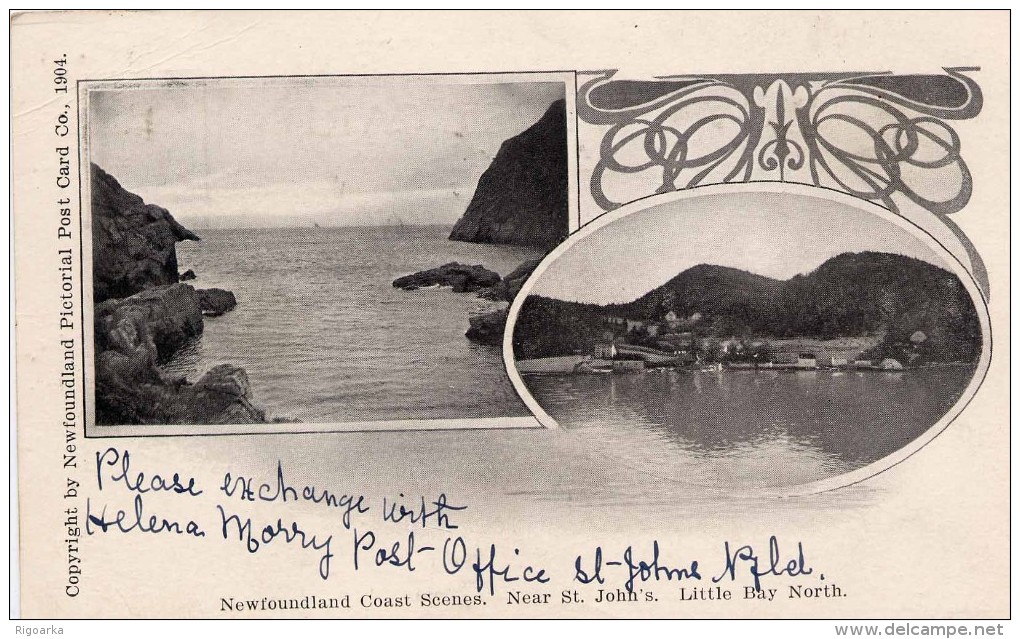 Copyright by Newfoundland Pictorial Post Card Co., 1904.
Please exchange with
Helena Morry Post-Office St-Johns Nfld.
Newfoundland Coast Scenes. Near St. John's. Little Bay North.
Rigoarka
www.delcampe.net